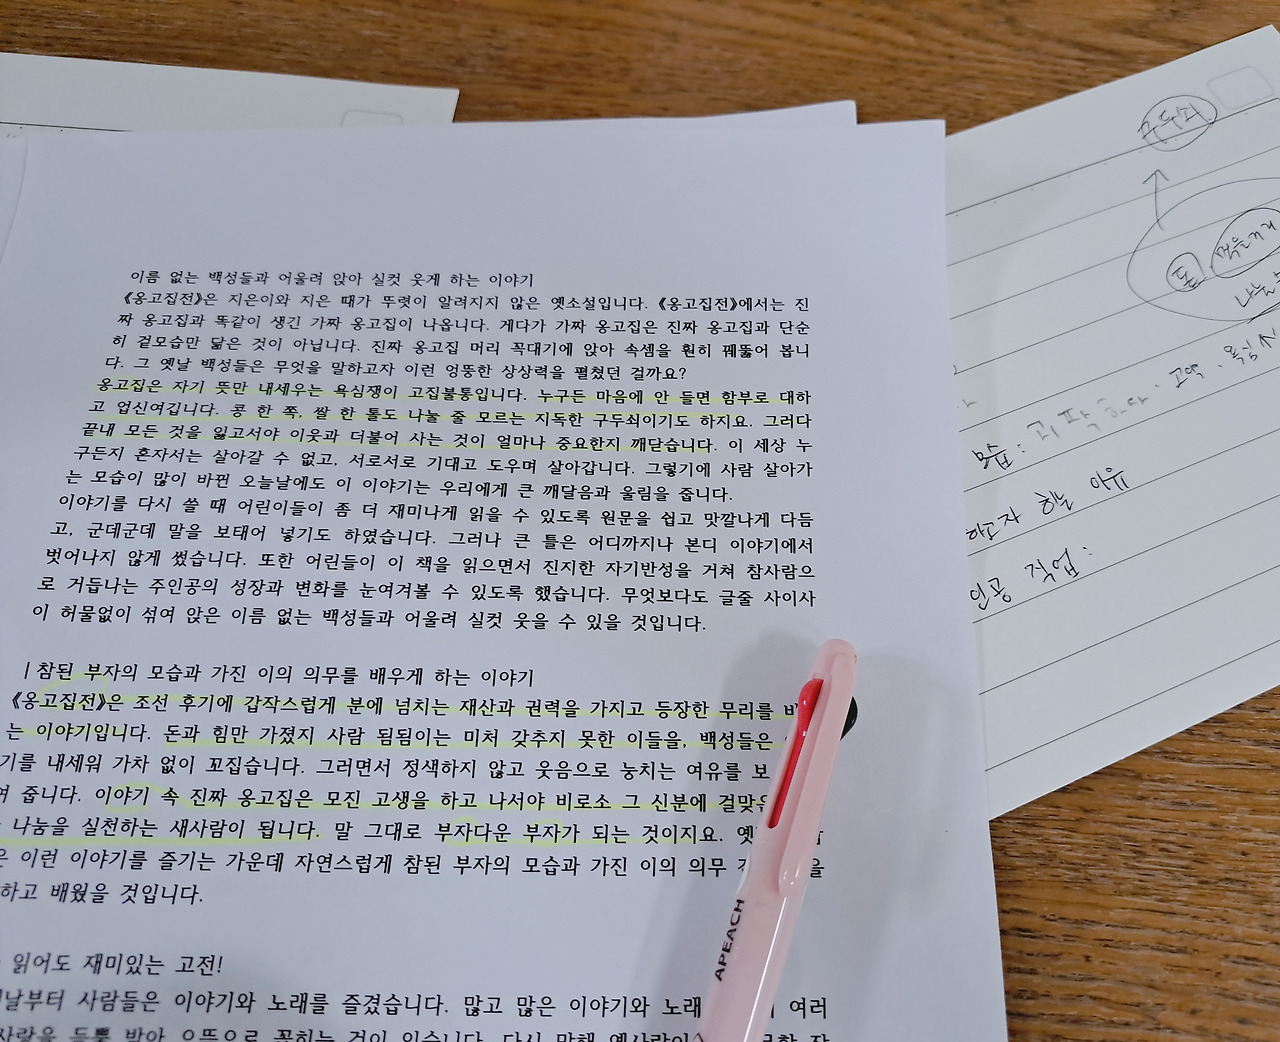 이름 없는 백성들과 어울려 앉아 실컷 웃게 하는 이야기
《옹고집전》은 지은이와 지은 때가 뚜렷이 알려지지 않은 옛소설입니다. 《옹고집전》에서는 진
짜 옹고집과 똑같이 생긴 가짜 옹고집이 나옵니다. 게다가 가짜 옹고집은 진짜 옹고집과 단순
히 겉모습만 닮은 것이 아닙니다. 진짜 옹고집 머리 꼭대기에 앉아 속셈을 훤히 꿰뚫어 봅니
다. 그 옛날 백성들은 무엇을 말하고자 이런 엉뚱한 상상력을 펼쳤던 걸까요?
옹고집은 자기 뜻만 내세우는 욕심쟁이 고집불통입니다. 누구든 마음에 안 들면 함부로 대하
고 업신여깁니다. 콩 한 쪽, 쌀 한 톨도 나눌 줄 모르는 지독한 구두쇠이기도 하지요. 그러다
끝내 모든 것을 잃고서야 이웃과 더불어 사는 것이 얼마나 중요한지 깨닫습니다. 이 세상 누
구든지 혼자서는 살아갈 수 없고, 서로서로 기대고 도우며 살아갑니다. 그렇기에 사람 살아가
는 모습이 많이 바뀐 오늘날에도 이 이야기는 우리에게 큰 깨달음과 울림을 줍니다.
이야기를 다시 쓸 때 어린이들이 좀 더 재미나게 읽을 수 있도록 원문을 쉽고 맛깔나게 다듬
고, 군데군데 말을 보태어 넣기도 하였습니다. 그러나 큰 틀은 어디까지나 본디 이야기에서
벗어나지 않게 썼습니다. 또한 어린들이 이 책을 읽으면서 진지한 자기반성을 거쳐 참사람으
로 거듭나는 주인공의 성장과 변화를 눈여겨볼 수 있도록 했습니다. 무엇보다도 글줄 사이사
이 허물없이 섞여 앉은 이름 없는 백성들과 어울려 실컷 웃을 수 있을 것입니다.
| 참된 부자의 모습과 가진 이의 의무를 배우게 하는 이야기
《옹고집전》은 조선 후기에 갑작스럽게 분에 넘치는 재산과 권력을 가지고 등장한 무리를
는 이야기입니다. 돈과 힘만 가졌지 사람 됨됨이는 미처 갖추지 못한 이들을, 백성들은
기를 내세워 가차 없이 꼬집습니다. 그러면서 정색하지 않고 웃음으로 눙치는 여유를 보
여 줍니다. 이야기 속 진짜 옹고집은 모진 고생을 하고 나서야 비로소 그 신분에 걸맞은
나눔을 실천하는 새사람이 됩니다. 말 그대로 부자다운 부자가 되는 것이지요. 옛
은 이런 이야기를 즐기는 가운데 자연스럽게 참된 부자의 모습과 가진 이의 의무 을
하고 배웠을 것입니다.
읽어도 재미있는 고전!
날부터 사람들은 이야기와 노래를 즐겼습니다. 많고 많은 이야기와 노래 여러
사랑을 듬뿍 받아 으뜸으로 꼽히는 것이 있습니다. 다시 말해 옛사람이
APEACH
구두쇠
돈
먹을거리
모습: 괴팍하다.
하고자 하는 이유
인공 직업: